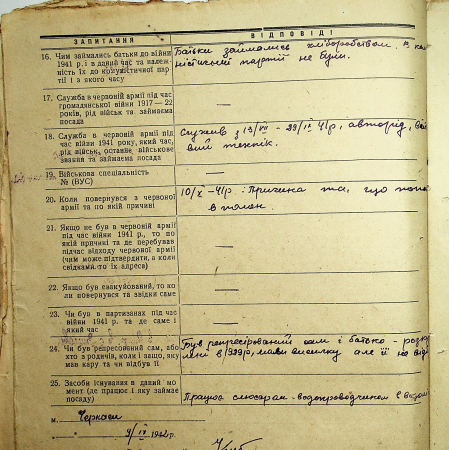 ЗАПИТАННЯ
ВІДПОВІДІ
16. Чим займались батьки до війни
1941 р. і в даний час та належ-
ність їх до комуністичної пар-
тії і з якого часу
Батьки займались хліборобством. в ко
ністичній партії не були.
17. Служба в червоній армії під час
громадянської війни 1917—22
років, рід військ та займаєма
посада
—
18. Служба в червоній армії під
час війни 1941 року, який час,
рід військ, останнє військове
звання та займаєма посада
Служив з 13/VII - 29/IX 41р, автород,
вий технік.
19. Військова спеціальність
№ (ВУС)
—
20. Коли повернувся з червоної
армії та по якій причині
10/X -41р. Причина та, що попа
в полон.
21. Якщо не був в червоній армії
під час війни 1941 р., то по
якій причині та де перебував
під час відходу червоної армії
(чим може підтвердити, а коли
свідками то їх адреса)
—
22. Якщо був евакуйований, то ко-
ли повернувся та звідки саме
—
23. Чи був в партизанах під час
війни 1941 р. та де саме і
який час
—
24. Чи був репресований сам, або
хто з родичів, коли і защо, яку
мав кару та чи відбув її
Був репресірований сам і батько - розку
лені в 1929р, мали висилку але її не від
25. Засоби існування в даний мо-
мент (де працює і яку займає
посаду)
Працюю слюсарем-водопроводчиком в
м. Черкаси
9/IV 1942р.